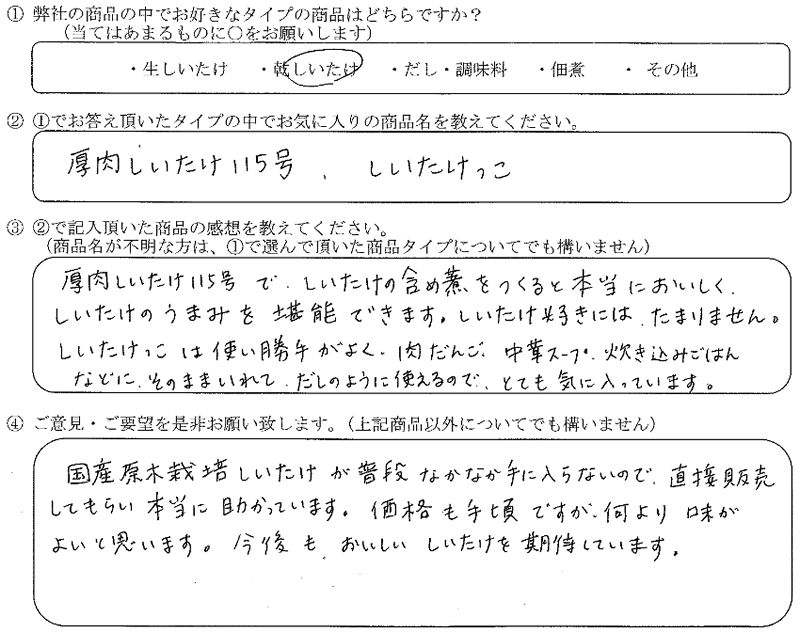 ① 弊社の商品の中でお好きなタイプの商品はどちらですか？
（当てはあまるものに○をお願いします）
・生しいたけ ・乾しいたけ ・だし・調味料 ・佃煮 ・ その他
② ①でお答え頂いたタイプの中でお気に入りの商品名を教えてください。
厚肉しいたけ115号 、 しいたけっこ
③ ②で記入頂いた商品の感想を教えてください。
（商品名が不明な方は、①で選んで頂いた商品タイプについてでも構いません）
厚肉しいたけ115号で、しいたけの含め煮をつくると本当においしく、
しいたけのうまみを堪能できます。しいたけ好きには、たまりません。
しいたけっこは使い勝手がよく、肉だんご、中華スープ、炊き込みごはん
などに、そのままいれて、だしのように使えるので、とても気に入っています。
④ ご意見・ご要望を是非お願い致します。（上記商品以外についてでも構いません）
国産原木栽培しいたけが普段なかなか手に入らないので、直接販売
してもらい本当に助かっています。価格も手頃ですが、何より味が
よいと思います。今後も、おいしいしいたけを期待しています。